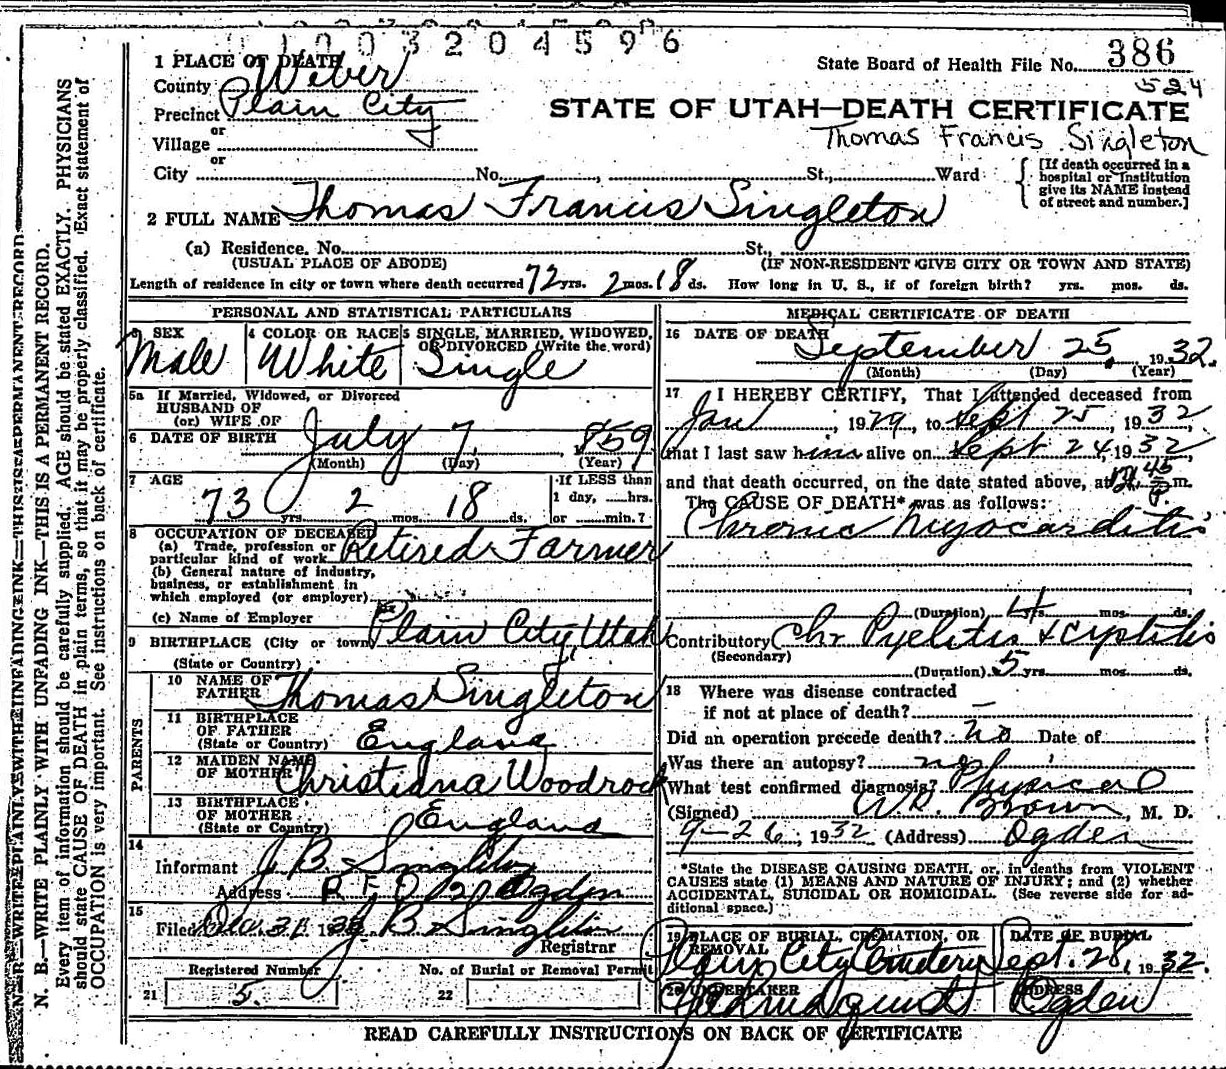 0 1 0 0 3 2 0 4 5 9 6
1 PLACE OF DEATH
County Weber
State Board of Health File No. 386
524
Precinct Plain City
STATE OF UTAH—DEATH CERTIFICATE
or
Village
Thomas Francis Singleton
or
City No. , St., Ward
[If death occurred in a hospital or institution give its NAME instead of street and number.]
2 FULL NAME Thomas Francis Singleton
(a) Residence. No. St.,
(USUAL PLACE OF ABODE) (IF NON-RESIDENT GIVE CITY OR TOWN AND STATE)
Length of residence in city or town where death occurred 72 yrs. 2 mos. 18 ds. How long in U. S., if of foreign birth? yrs. mos. ds.
PERSONAL AND STATISTICAL PARTICULARS
3 SEX
Male
4 COLOR OR RACE
White
5 SINGLE, MARRIED, WIDOWED, OR DIVORCED (Write the word)
Single
5a If Married, Widowed, or Divorced
HUSBAND OF
(or) WIFE OF
6 DATE OF BIRTH July 7, 1859
(Month) (Day) (Year)
7 AGE
73 yrs. 2 mos. 18 ds.
If LESS than
1 day, hrs.
or min.?
8 OCCUPATION OF DECEASED
(a) Trade, profession or
particular kind of work Retired Farmer
(b) General nature of industry,
business, or establishment in
which employed (or employer)
(c) Name of Employer
9 BIRTHPLACE (City or town) Plain City, Utah
(State or Country)
PARENTS
10 NAME OF
FATHER Thomas Singleton
11 BIRTHPLACE
OF FATHER
(State or Country) England
12 MAIDEN NAME
OF MOTHER Christiana Woodrock
13 BIRTHPLACE
OF MOTHER
(State or Country) England
14
Informant J B Singleton
Address R. F. D 2 Ogden
15
Filed 193 J B Singleton
Registrar
Registered Number No. of Burial or Removal Permit
21 5. 22
MEDICAL CERTIFICATE OF DEATH
16 DATE OF DEATH
September 25, 1932.
(Month) (Day) (Year)
17 I HEREBY CERTIFY, That I attended deceased from
Jan , 1929, to Sept 25, 1932,
that I last saw him alive on Sept 24, 1932
and that death occurred, on the date stated above, at m.
The CAUSE OF DEATH* was as follows:
Chronic Myocarditis
(Duration) 4 yrs. mos. ds.
Contributory Chr Pyelitis & cystitis
(Secondary)
(Duration) 5 yrs. mos. ds.
18 Where was disease contracted
if not at place of death? —
Did an operation precede death? no Date of
Was there an autopsy? no
What test confirmed diagnosis? Physical
(Signed) W. Brown, M. D.
9-26, 1932 (Address) Ogden
*State the DISEASE CAUSING DEATH, or, in deaths from VIOLENT
CAUSES state (1) MEANS AND NATURE OF INJURY; and (2) whether
ACCIDENTAL, SUICIDAL OR HOMICIDAL. (See reverse side for ad-
ditional space.)
19 PLACE OF BURIAL, CREMATION, OR REMOVAL
Plain City Cemetery
DATE OF BURIAL
Sept. 28, 1932.
20 UNDERTAKER
ADDRESS
Ogden
READ CAREFULLY INSTRUCTIONS ON BACK OF CERTIFICATE
N. B.—WRITE PLAINLY WITH UNFADING INK—THIS IS A PERMANENT RECORD.
Every item of information should be carefully supplied. AGE should be stated EXACTLY. PHYSICIANS
should state CAUSE OF DEATH in plain terms, so that it may be properly classified. Exact statement of
OCCUPATION is very important. See instructions on back of certificate.